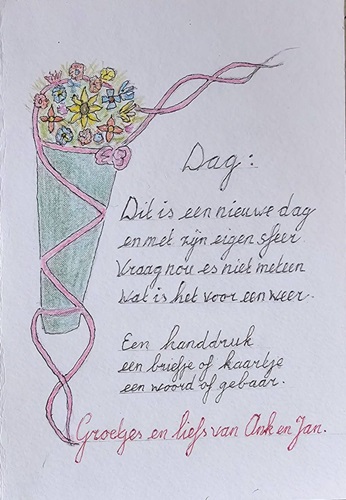 Dag:
Dit is een nieuwe dag
en met zijn eigen sfeer
Vraag nou es niet meteen
wat is het voor een weer.
Een handdruk
een briefje of kaartje
een woord of gebaar.
Groetjes en liefs van Ank en Jan.